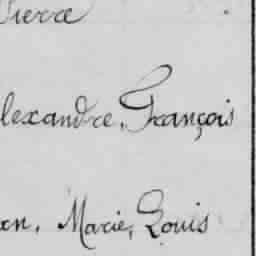 Pierre
lexandre, François
en, Marie, Louis